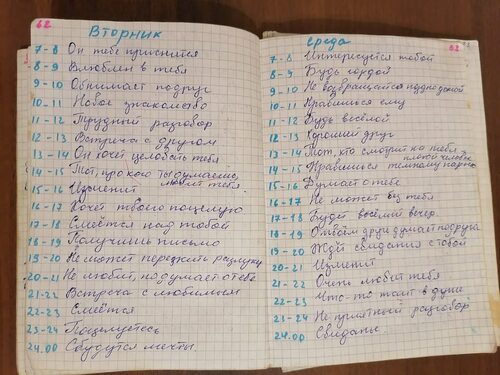 62
Вторник
7-8 Он тебе приснится
8-9 Влюблен в тебя
9-10 Обнимает подруг
10-11 Новое знакомство
11-12 Трудный разговор
12-13 Встреча с другом
13-14 Он хочет целовать тебя
14-15 Тот, про кого ты думаешь,
любит тебя
15-16 Изменит
16-17 Хочет твоего поцелую
17-18 Смеётся над тобой
18-19 Получишь письмо
19-20 Не может пережить разлуку
20-21 Не любит, но думает о тебе
21-22 Встреча с любимым
22-23 Смеётся
23-24 Поцелуетесь
24.00 Сбудутся мечты
62
Среда
7-8 Интересуется тобой
8-9 Будь гордой
9-10 Не возвращайся поздно домой
10-11 Нравишься ему
11-12 Будь весёлой
12-13 Хороший друг
13-14 Тот, кто смотрит на тебя
плохой человек
14-15 Нравишься темному парню
15-16 Думает о тебе
16-17 Не может без тебя
17-18 Будет весёлый вечер
18-19 О твоём друге думает подруга
19-20 Ждёт свидания с тобой
20-21 Изменит
21-22 Очень любит тебя
22-23 Что-то таит в душе
23-24 Не приятный разговор
24.00 Свидание